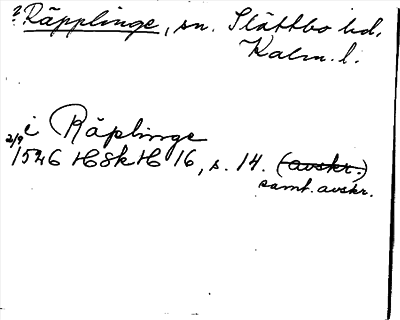 ? Räpplinge, sn. Slättbo hd.
Kalm. l.
i Räplinge
2/9 1546 HSkH 16, s. 14. (avskr.)
samt. avskr.